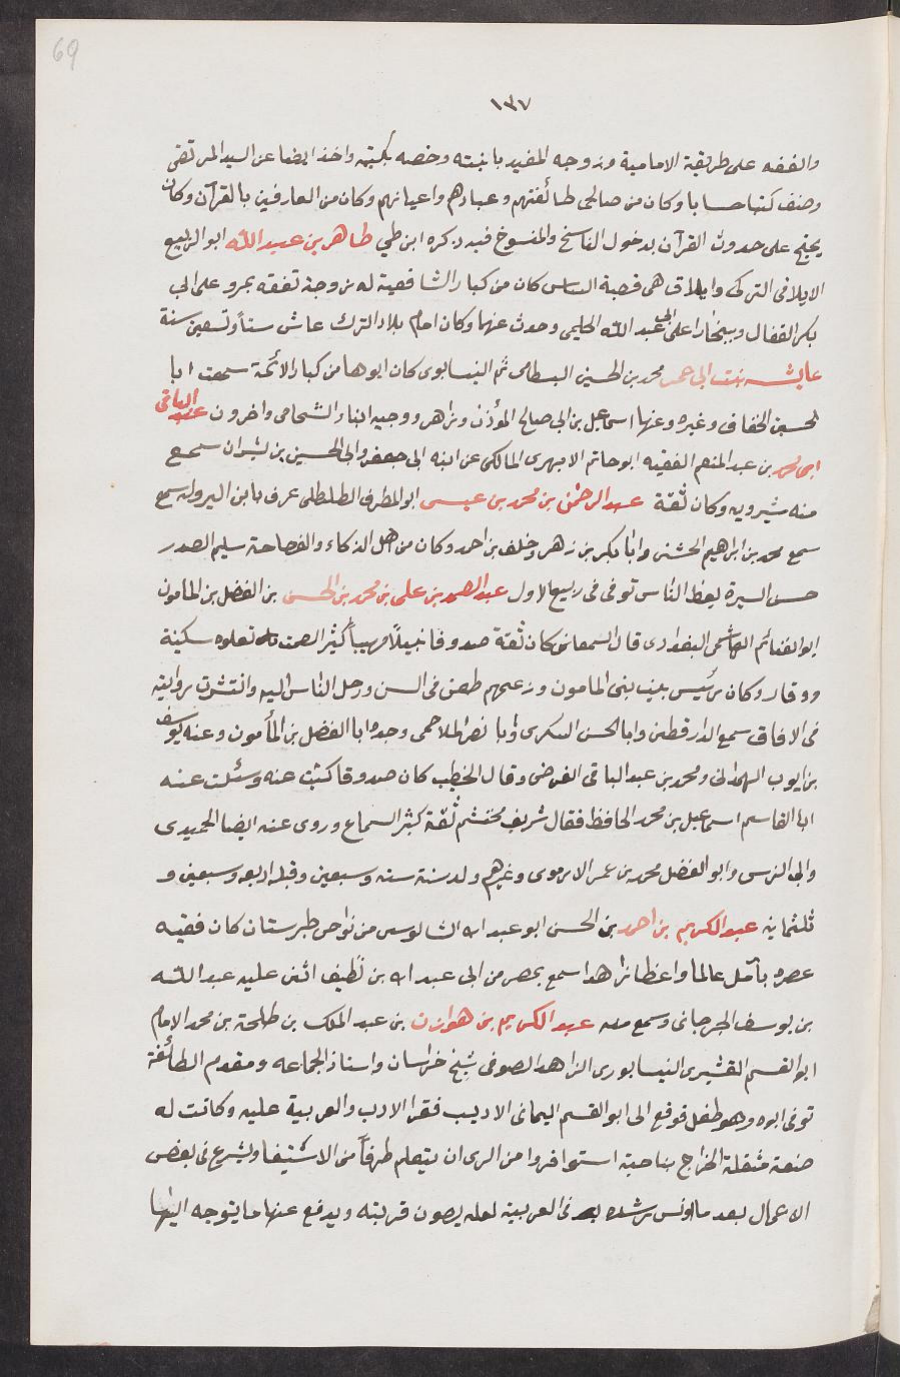 69
١٣٧
والفقه على طريقة الامامية وزوجه المفيد بابنته وخصه بكتبه واخذ ايضا عن السيد المرتضى
وصنف كتبا حسابا وكان من صالحى طائفتهم وعبادهم واعيانهم وكان من العارفين بالقرآن وكان
يحتج على حدوث القرآن بدخول الناسخ والمنسوخ فيه ذكره ابن طي طاهر بن عبد الله ابو الربيع
الايلاقى التركى وايلاق هى قصبة الساس كان من كبار الشافعية له وجه تفقه بمرو على ابى
بكر القفال وببخارا على ابى عبد الله الحليمى وحدث عنهما وكان امام بلاد الترك عاش ستاً وتسعين سنة
عايشه بنت ابى عمر محمد بن الحسين البسطامى ثم النيسابورى كان ابوها من كبار الائمة سمعت ابا
لحسين الخفاف وغيره وعنها اسماعيل بن ابى صالح المؤذن وزاهر ووجيه ابنا الشحامى واخرون عبد الباقى
ابن محمد بن عبد المنعم الفقيه ابو حاتم الابهرى المالكى عن ابنه ابى جعفر وابى الحسين بن بشران سمع
منه شيرويه وكان ثقة عبد الرحمن بن محمد بن عيسى ابو المطرف الطلطلى عرف بابن البيروله سمع
سمع محمد بن ابراهيم الخشنى وابا بكر بن زهر وخلف بن احمد وكان من اهل الذكاء والفصاحة سليم الصدر
حسن السيرة يعظ الناس توفى فى ربيع الاول عبد الصمد بن على بن محمد بن الحسن بن الفضل بن المامون
ابو الغنائم الهاشمى البغدادى قال السمعانى كان ثقة صدوقا نبيلاً مهيباً كثير الصمت تعلوه سكينة
ووقار وكان رئيس بيت بنى المامون وزعيمهم طعن فى السن ورحل الناس اليه وانتشرت روايته
فى الافاق سمع الدارقطنى وابا الحسن السكرى وابا نصر الملاحمى وجده ابا الفضل بن المأمون وعنه يوسف
بن ايوب الهمدانى ومحمد بن عبد الباقى الفرضى وقال الخطيب كان صدوقا كتبت عنه وسئلت عنه
ابا القاسم اسماعيل بن محمد الحافظ فقال شريف محتشم ثقة كثير السماع وروى عنه ايضا الحميدى
وابى النرسى وابو الفضل محمد بن عمر الارموى وغيرهم ولد سنة ستة وسبعين وقبله اربعه وسبعين و
ثلثمايه عبد الكريم بن احمد بن الحسن ابو عبد الله الشالوسى من نواحى طبرستان كان فقيه
عصره بآمل عالما واعظا زاهدا سمع بمصر من ابى عبد الله بن نظيف اثنى عليه عبد الله
بن يوسف الجرجانى وسمع منه عبد الكريم بن هوازن بن عبد الملك بن طلحة بن محمد الامام
ابو القسم القشيرى النيسابورى الزاهد الصوفى شيخ خراسان واستاذ الجماعه ومقدم الطائفة
توفى ابوه وهو طفل فوقع الى ابو القسم اليمانى الاديب فقرا الادب والعربية عليه وكانت له
ضيعة مثقلة الخراج بناحية استوا فروا من الرى ان يتعلم طرفاً من الاستيفا ويشرع فى بعض
الاعمال بعد ما اونس رشده به فى العربية لعله يصون قريته ويدفع عنها ما يتوجه اليها